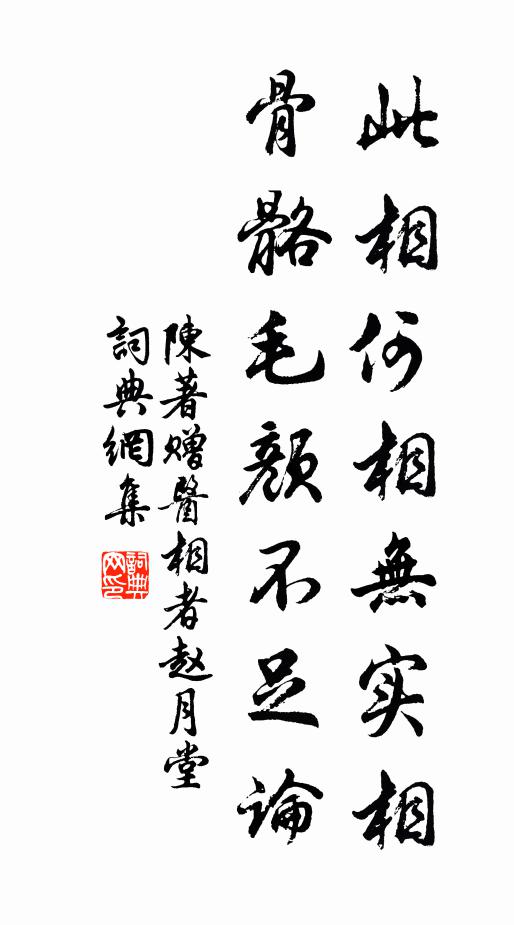 此相何相無实相
骨骼毛顏不足論
陳著赠醫相者赵月堂
詞典網集
詞典網印